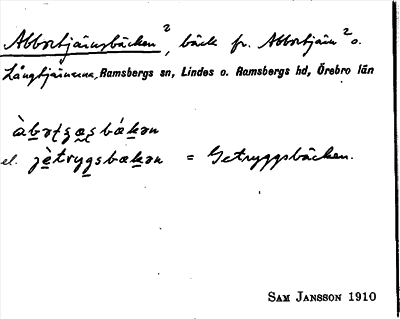 Abbortjärnsbäcken², bäck fr. Abbortjärn² o.
Långtjärnarna, Ramsbergs sn, Lindes o. Ramsbergs hd, Örebro län
el. = Getryggsbäcken.
SAM JANSSON 1910